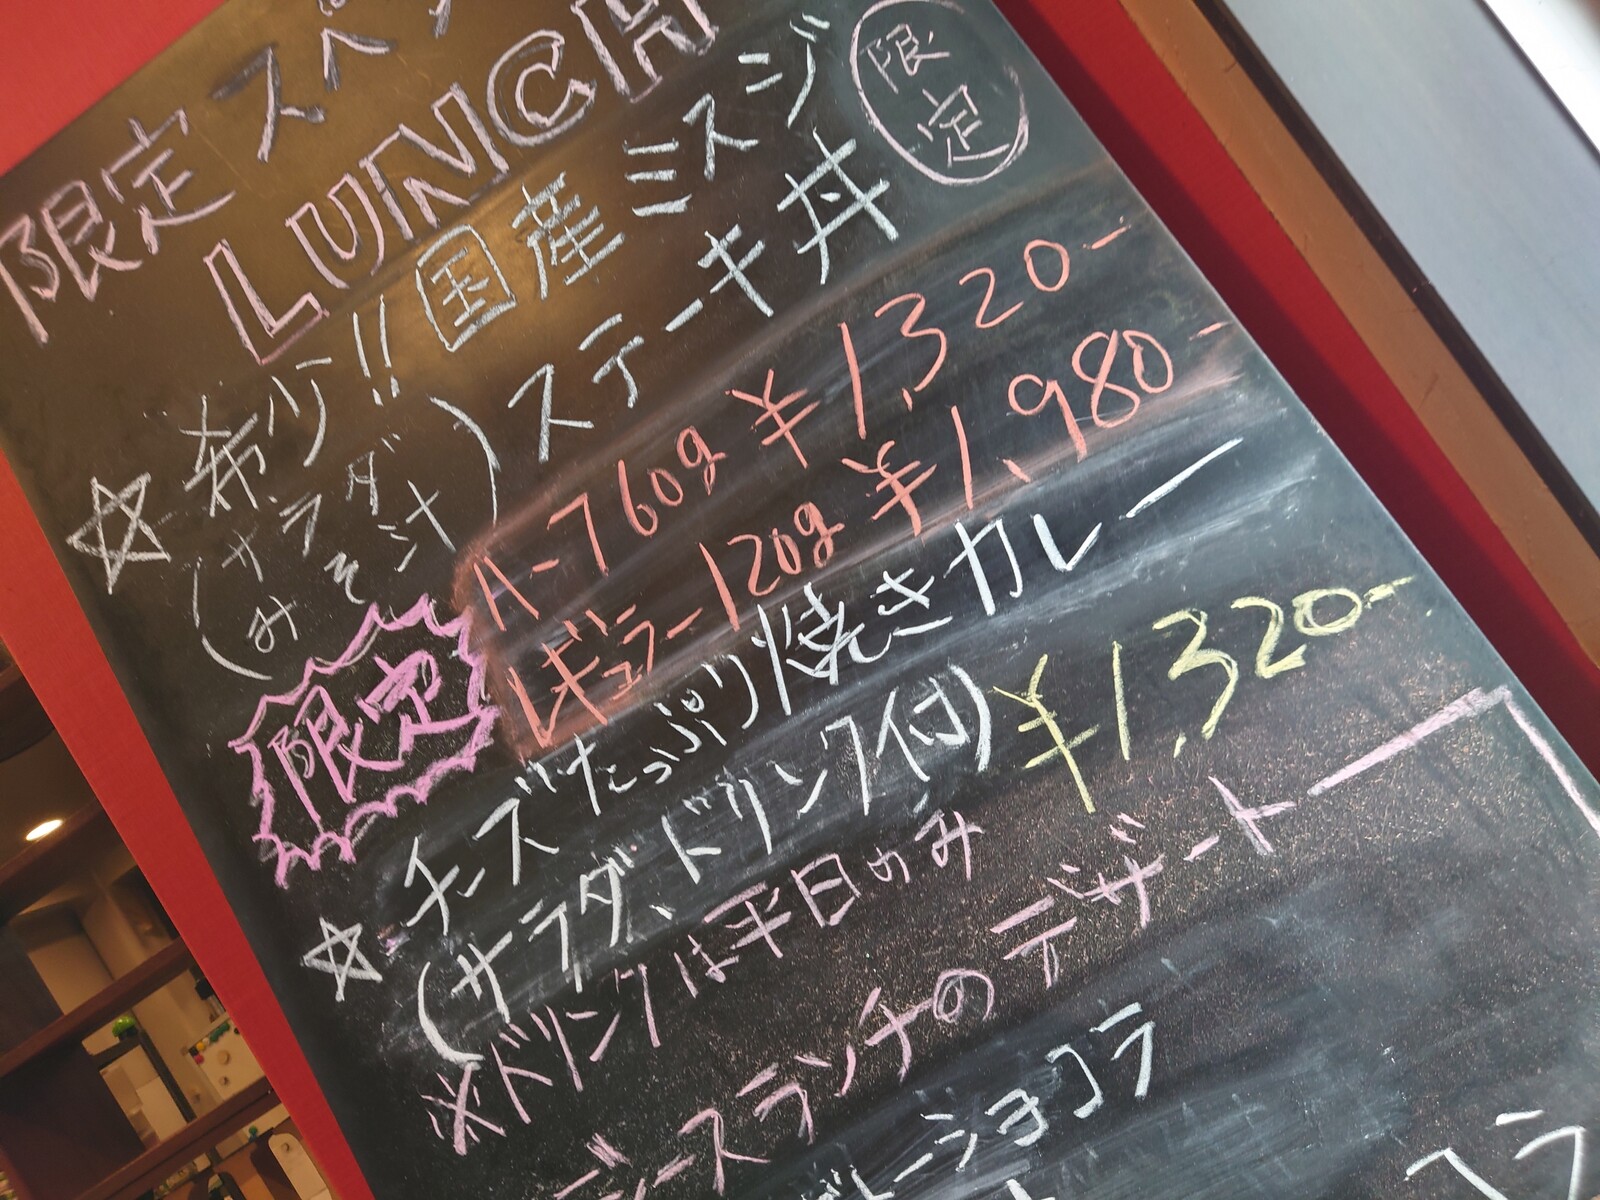 限定スペ
LUNCH
☆希少!!国産ミスジ
限定
(サラダ
みそ汁)ステーキ丼
ハーフ60g ¥1,320-
レギュラー120g ¥1,980-
限定
☆チーズたっぷり焼きカレー
(サラダ、ドリンク付) ¥1,320-
※ドリンクは平日のみ
ースランチのデザート
ショコラ